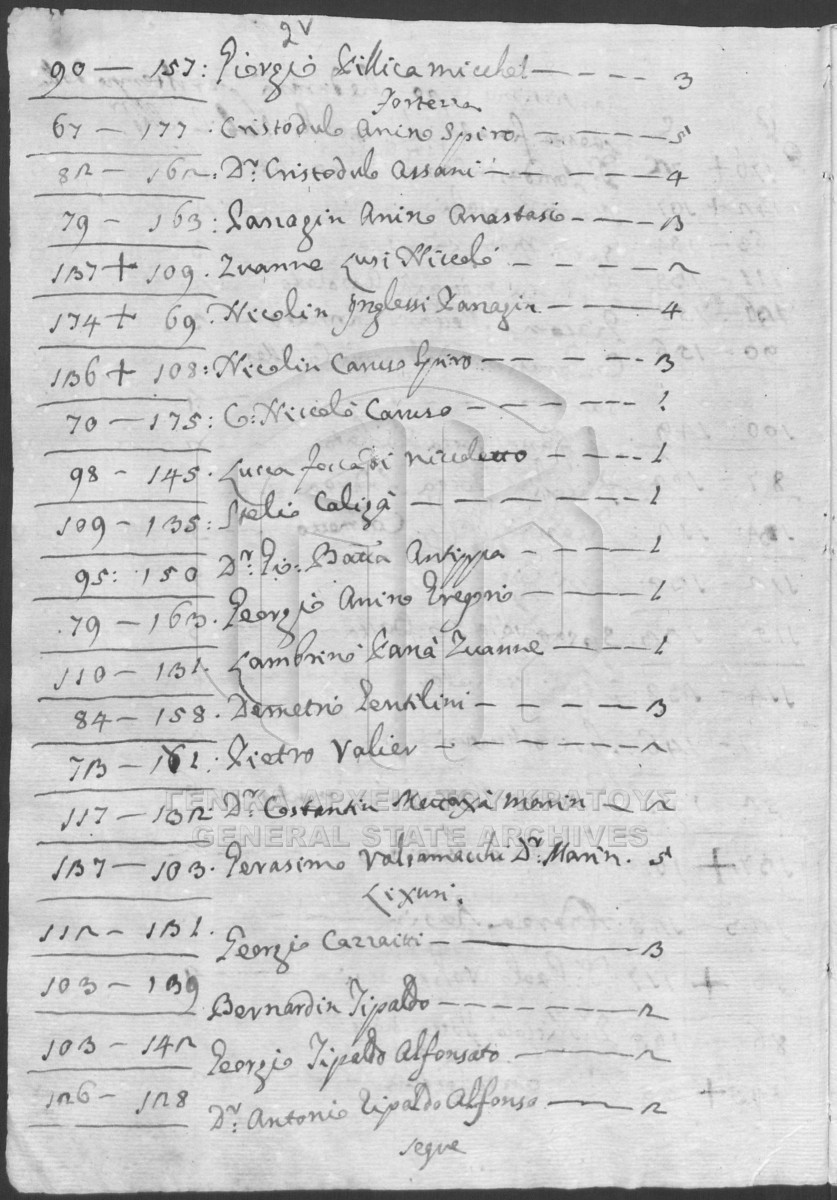 2v
90 — 157: Giorgio Killica micchel — — — — 3
Fortezza
67 — 177 · Cristodulo Anino Spiro — — — — 5
82 — 162 · Dr. Cristodulo Assani — — — — 4
79 — 163: Panagin Anino Anastasio — — — 3
137 + 109 · Zuanne Lusi Niccolò — — — — 2
174 + 69 · Nicolin Inglessi Panagin — — — 4
136 + 108: Nicolin Caruso Spiro — — — — 3
70 — 175: Co: Niccolò Caruso — — — — — 1
98 — 145 · Lucca Foccà di Niccoletto — — — 1
109 — 135: Stelio Caligà — — — — — 1
95: 150 Dr. Gio: Batta Antippa — — — — 1
79 — 163 · Georgio Anino Gregorio — — — 1
110 — 131 · Lambrino Fanà Zuanne — — — 1
84 — 158 · Demetrio Gentilini — — — — 3
73 — 161: Pietro Valier — — — — — 2
117 — 132 Dr. Costantin Metaxà Marin — — 2
137 — 103 · Gerasimo Valsamacchi Dr. Marin. 5 +
Lixuri.
112 — 131 · Georgio Cazzaitti — — 3
103 — 139 Bernardin Tipaldo — — — — — 2
103 — 142 Georgio Tipaldo Alfonsato — — 2
126 — 128 Dr. Antonio Tipaldo Alfonso — — 2
segue
ΓΕΝΙΚΑ ΑΡΧΕΙΑ ΤΟΥ ΚΡΑΤΟΥΣ
GENERAL STATE ARCHIVES